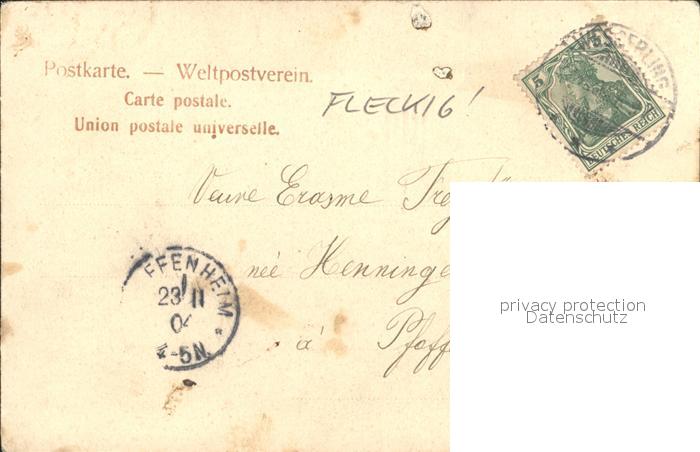 Postkarte. — Weltpostverein.
Carte postale.
Union postale universelle.
FLECKIG!
WESSERLING
5
DEUTSCHES REICH
Veuve Erasme
née Henninge
à Pfaff
FFENHEIM
23 II
04
-5N.
privacy protection
Datenschutz